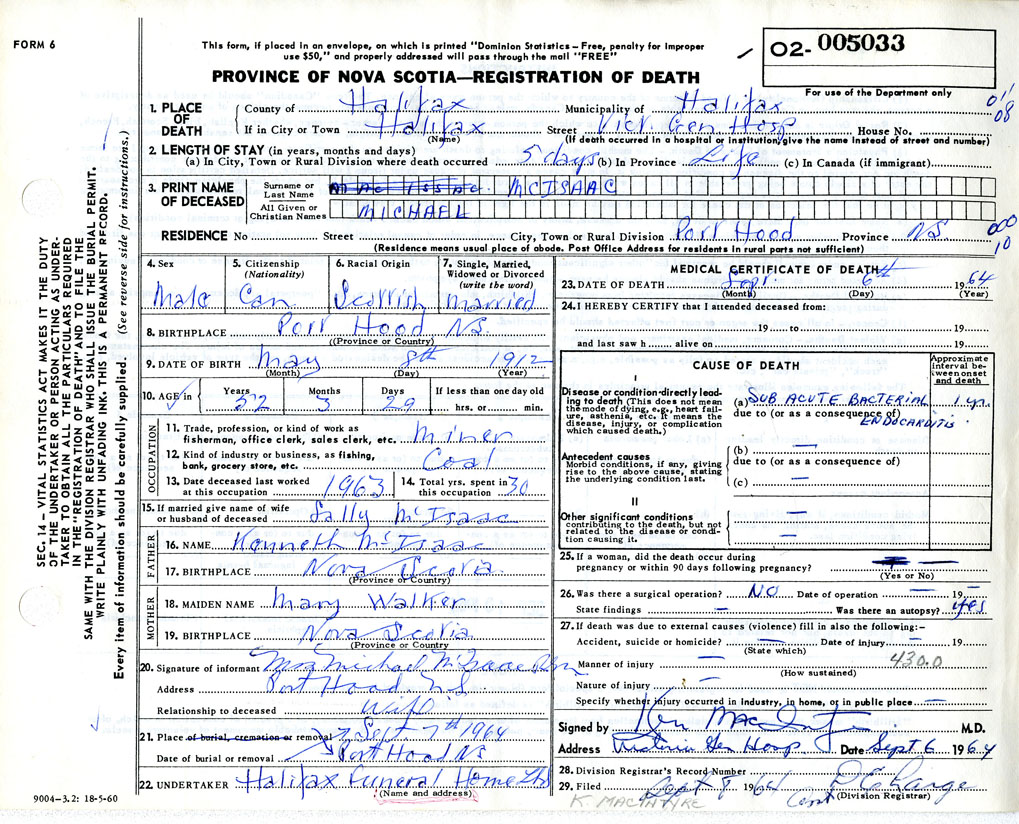 FORM 6
This form, if placed in an envelope, on which is printed "Dominion Statistics – Free, penalty for improper
use $50," and properly addressed will pass through the mail "FREE"
PROVINCE OF NOVA SCOTIA—REGISTRATION OF DEATH
02-005033
For use of the Department only
011
08
1. PLACE OF DEATH { County of Halifax Municipality of Halifax
If in City or Town Halifax Street Vict. Gen Hosp House No.
(Name) (If death occurred in a hospital or institution, give the name instead of street and number)
2. LENGTH OF STAY (in years, months and days)
(a) In City, Town or Rural Division where death occurred 5 days (b) In Province Life (c) In Canada (if immigrant)
3. PRINT NAME OF DECEASED Surname or Last Name Mac Issac. McISAAC
All Given or Christian Names MICHAEL
000
10
RESIDENCE No Street City, Town or Rural Division Port Hood Province NS.
(Residence means usual place of abode. Post Office Address for residents in rural parts not sufficient)
4. Sex Male
5. Citizenship (Nationality) Can
6. Racial Origin Scottish
7. Single, Married, Widowed or Divorced (write the word) Married
8. BIRTHPLACE Port Hood NS.
(Province or Country)
9. DATE OF BIRTH May 8th 1912
(Month) (Day) (Year)
10. AGE in Years 52 Months 3 Days 29 If less than one day old hrs. or min.
OCCUPATION
11. Trade, profession, or kind of work as fisherman, office clerk, sales clerk, etc. Miner
12. Kind of industry or business, as fishing, bank, grocery store, etc. Coal
13. Date deceased last worked at this occupation 1963 14. Total yrs. spent in this occupation 30
15. If married give name of wife or husband of deceased Sally McIsaac
FATHER
16. NAME Kenneth McIsaac
17. BIRTHPLACE Nova Scotia
(Province or Country)
MOTHER
18. MAIDEN NAME Mary Walker
19. BIRTHPLACE Nova Scotia
(Province or Country)
20. Signature of informant Mrs Michael McIsaac
Address Port Hood. N.S
Relationship to deceased Wife
21. Place of burial, cremation or removal Sept 7th 1964
Date of burial or removal Port Hood NS
22. UNDERTAKER Halifax Funeral Home Ltd
(Name and address)
MEDICAL CERTIFICATE OF DEATH
23. DATE OF DEATH Sept. 6th 1964
(Month) (Day) (Year)
24. I HEREBY CERTIFY that I attended deceased from:
19 to 19
and last saw h alive on 19
CAUSE OF DEATH
Approximate interval between onset and death
I
Disease or condition directly leading to death (This does not mean the mode of dying, e.g., heart failure, asthenia, etc. It means the disease, injury, or complication which caused death.)
(a) SUB ACUTE BACTERIAL 1 yr.
due to (or as a consequence of)
ENDOCARDITIS.
Antecedent causes
Morbid conditions, if any, giving rise to the above cause, stating the underlying condition last.
(b) —
due to (or as a consequence of)
(c) —
II
Other significant conditions
contributing to the death, but not related to the disease or condition causing it.
—
—
25. If a woman, did the death occur during
pregnancy or within 90 days following pregnancy?
(Yes or No)
26. Was there a surgical operation? NO Date of operation — 19
State findings — Was there an autopsy? yes
27. If death was due to external causes (violence) fill in also the following:–
Accident, suicide or homicide? — Date of injury — 19
(State which)
Manner of injury — 430.0
(How sustained)
Nature of injury —
Specify whether injury occurred in industry, in home, or in public place —
Signed by Ken MacIntyre M.D.
Address Victoria Gen Hosp Date Sept 6 1964
28. Division Registrar's Record Number
29. Filed Sept 8 1964
(Division Registrar)
K. MACINTYRE
9004-3.2: 18-5-60
SEC. 14 – VITAL STATISTICS ACT MAKES IT THE DUTY
OF THE UNDERTAKER OR PERSON ACTING AS UNDER-
TAKER TO OBTAIN ALL THE PARTICULARS REQUIRED
IN THE "REGISTRATION OF DEATH" AND TO FILE THE
SAME WITH THE DIVISION REGISTRAR WHO SHALL ISSUE THE BURIAL PERMIT.
WRITE PLAINLY WITH UNFADING INK. THIS IS A PERMANENT RECORD.
Every item of information should be carefully supplied. (See reverse side for instructions.)